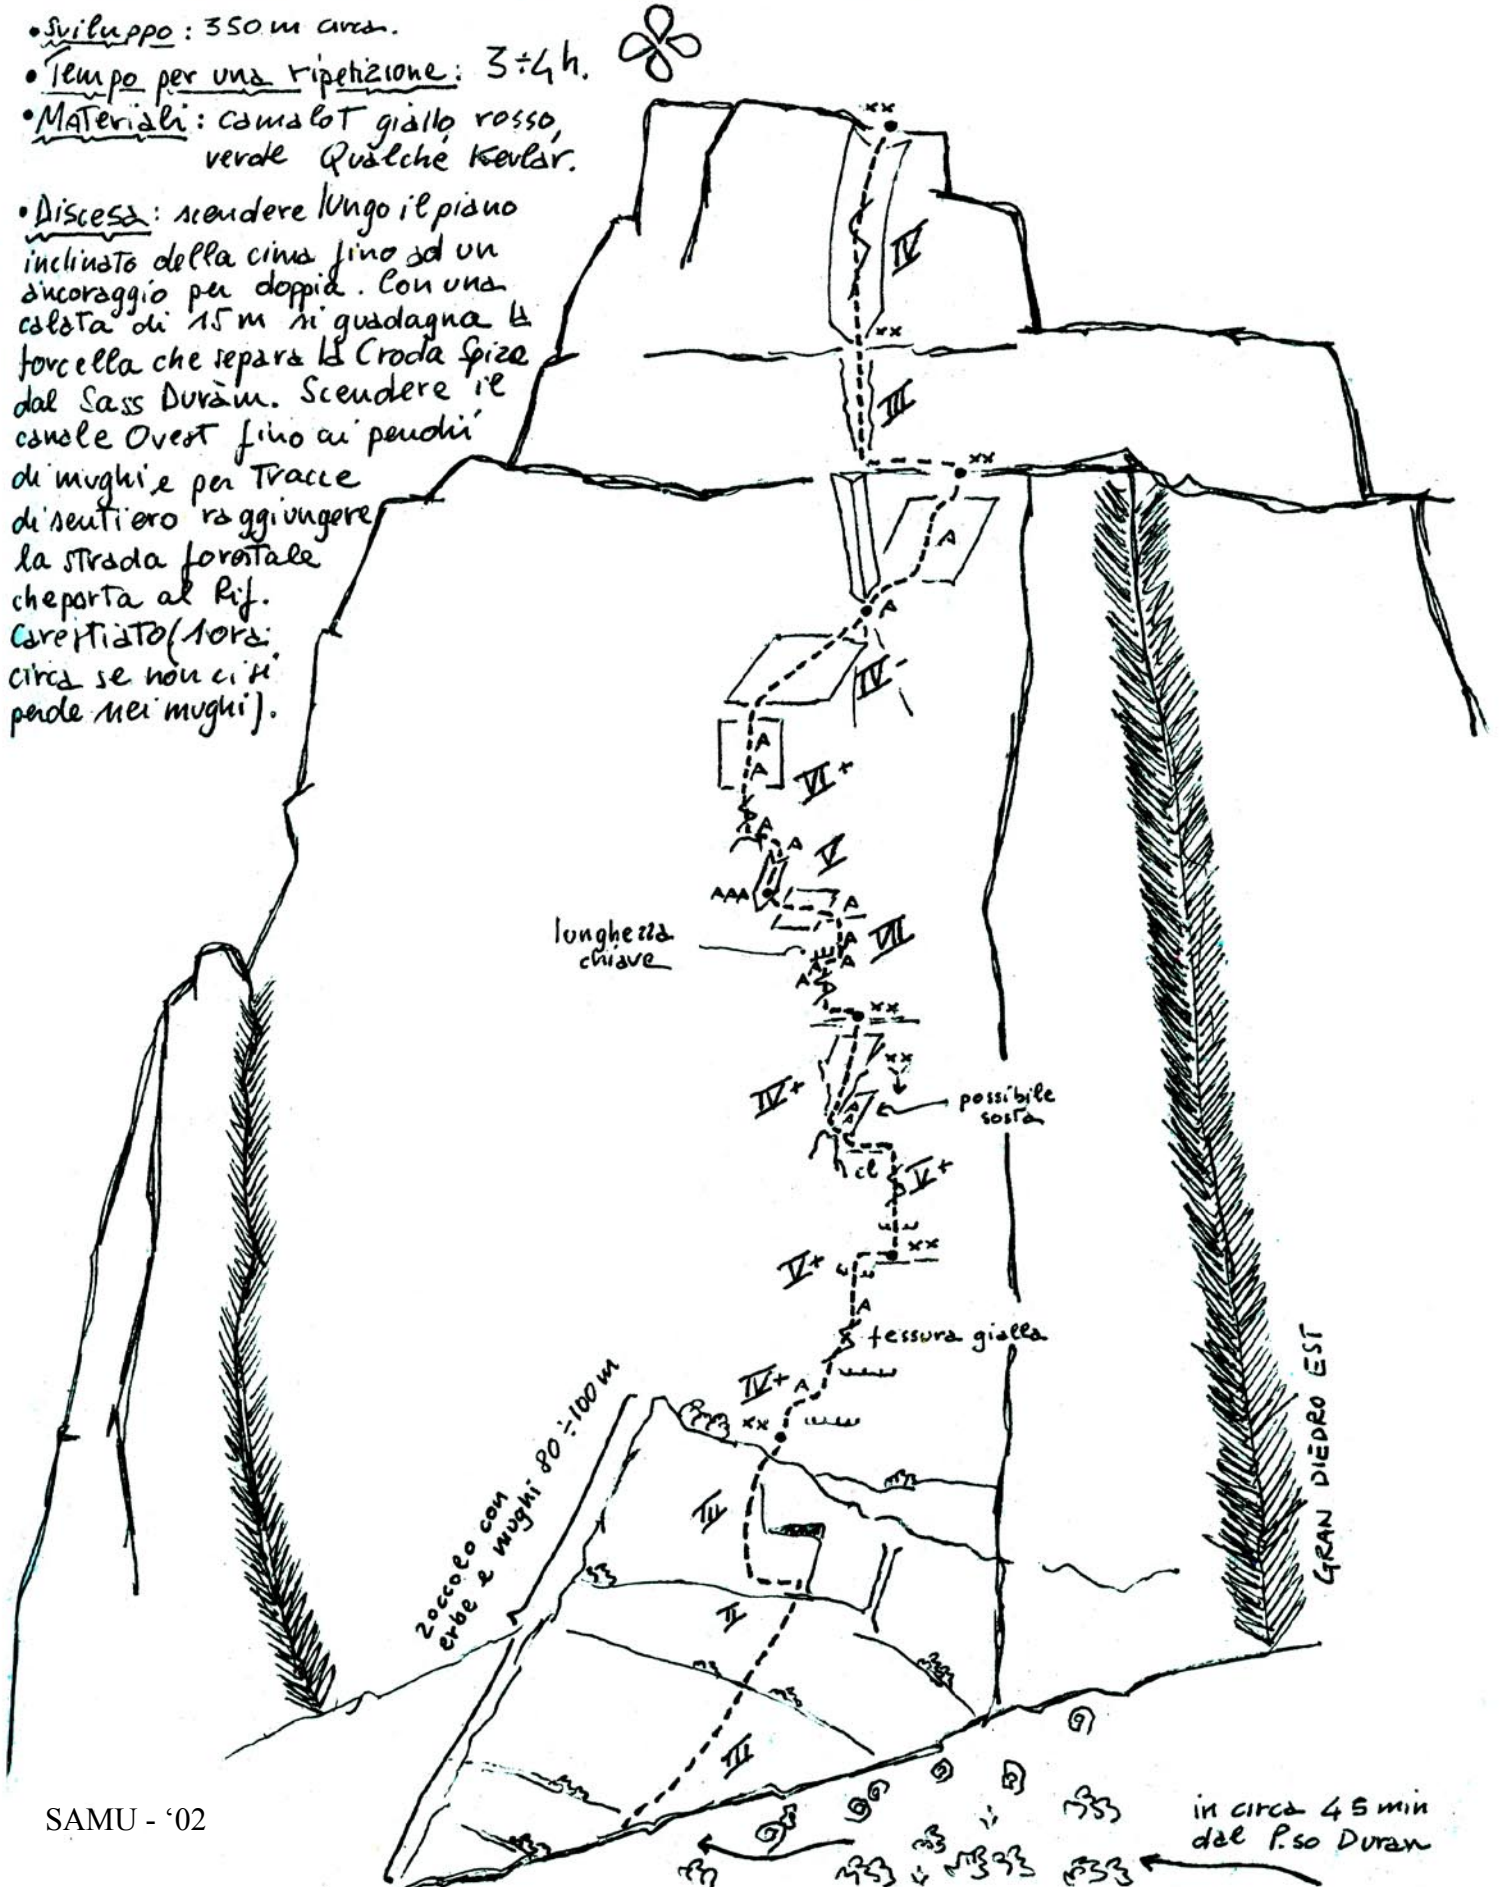 • Sviluppo: 350 m circa.
• Tempo per una ripetizione: 3÷4 h.
• Materiali: camalot giallo, rosso,
verde Qualche Kevlar.
• Discesa: scendere lungo il piano
inclinato della cima fino ad un
ancoraggio per doppia. Con una
calata di 15 m si guadagna la
forcella che separa la Croda Spiza
dal Sass Duràm. Scendere il
canale Ovest fino ai pendii
di mughi e per Tracce
di sentiero raggiungere
la strada forestale
che porta al Rif.
Carestiato (1 ora
circa se non ci si
perde nei mughi).
xx
IV
xx
III
xx
A
A
IV-
A
A
VI+
A
A
V
AAA
A
VII
A
A
A
A
lunghezza
chiave
xx
xx
IV+
possibile
sosta
A
A
cl
V+
xx
V+
A
fessura gialla
IV+
A
xx
zoccolo con
erbe e mughi 80÷100 m
III
II
III
GRAN DIEDRO EST
in circa 45 min
dal P.so Duran
SAMU - ‘02